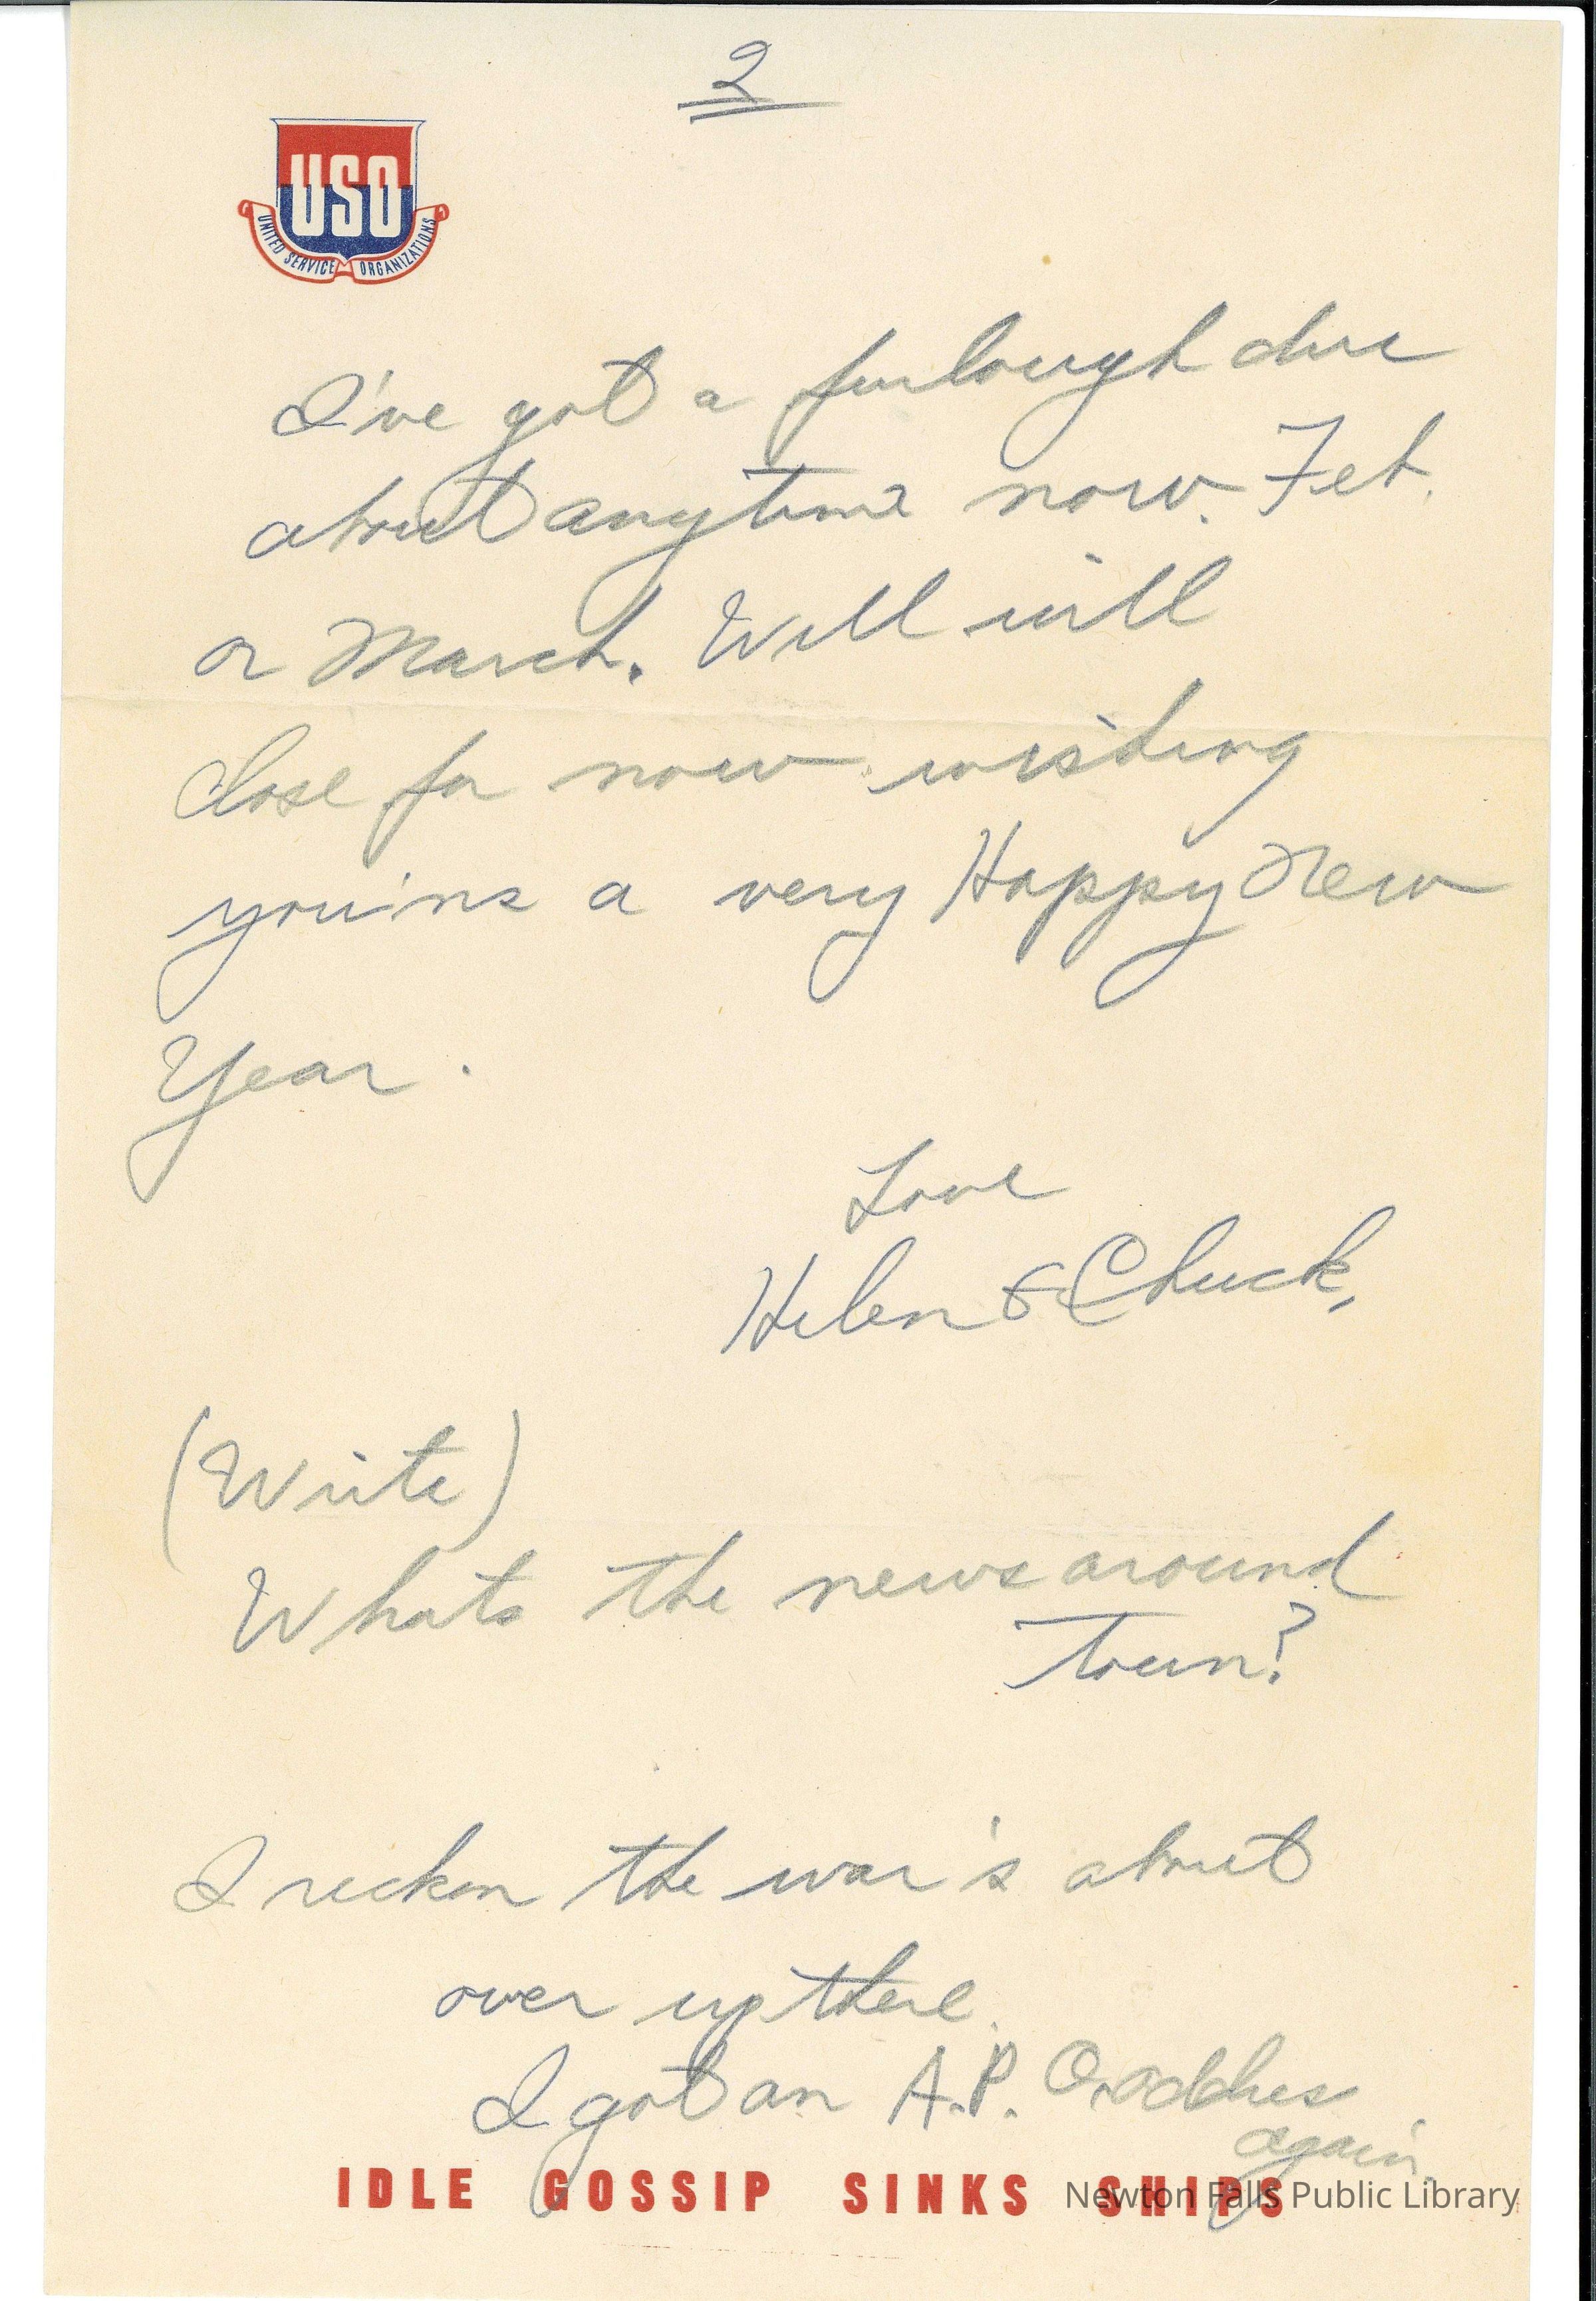 2
USO
UNITED SERVICE ORGANIZATIONS
I've got a furlough due
about anytime now. Feb.
or March. Well will
close for now wishing
you'ns a very Happy New
Year.
Love
Helen & Chuck,
(Write)
Whats the news around
town?
I reckon the war's about
over up there.
I got an A.P.O. addres
again.
IDLE GOSSIP SINKS SHIPS
Newton Falls Public Library